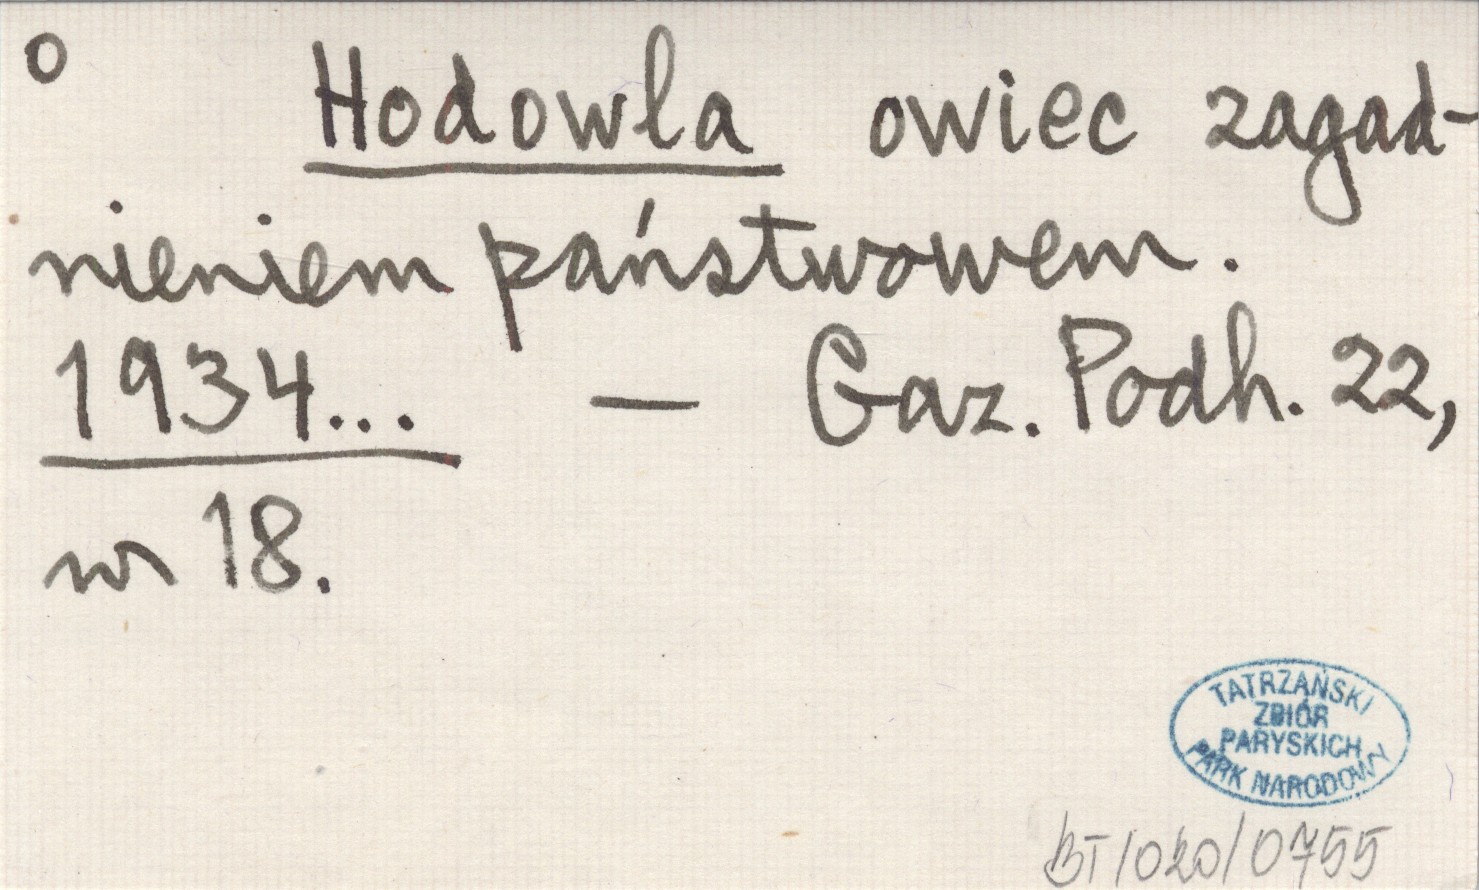 o
Hodowla owiec zagad-
nieniem państwowem.
1934... — Gaz. Podh. 22,
nr 18.
TATRZAŃSKI
ZBIÓR
PARYSKICH
PARK NARODOWY
BT/020/0755